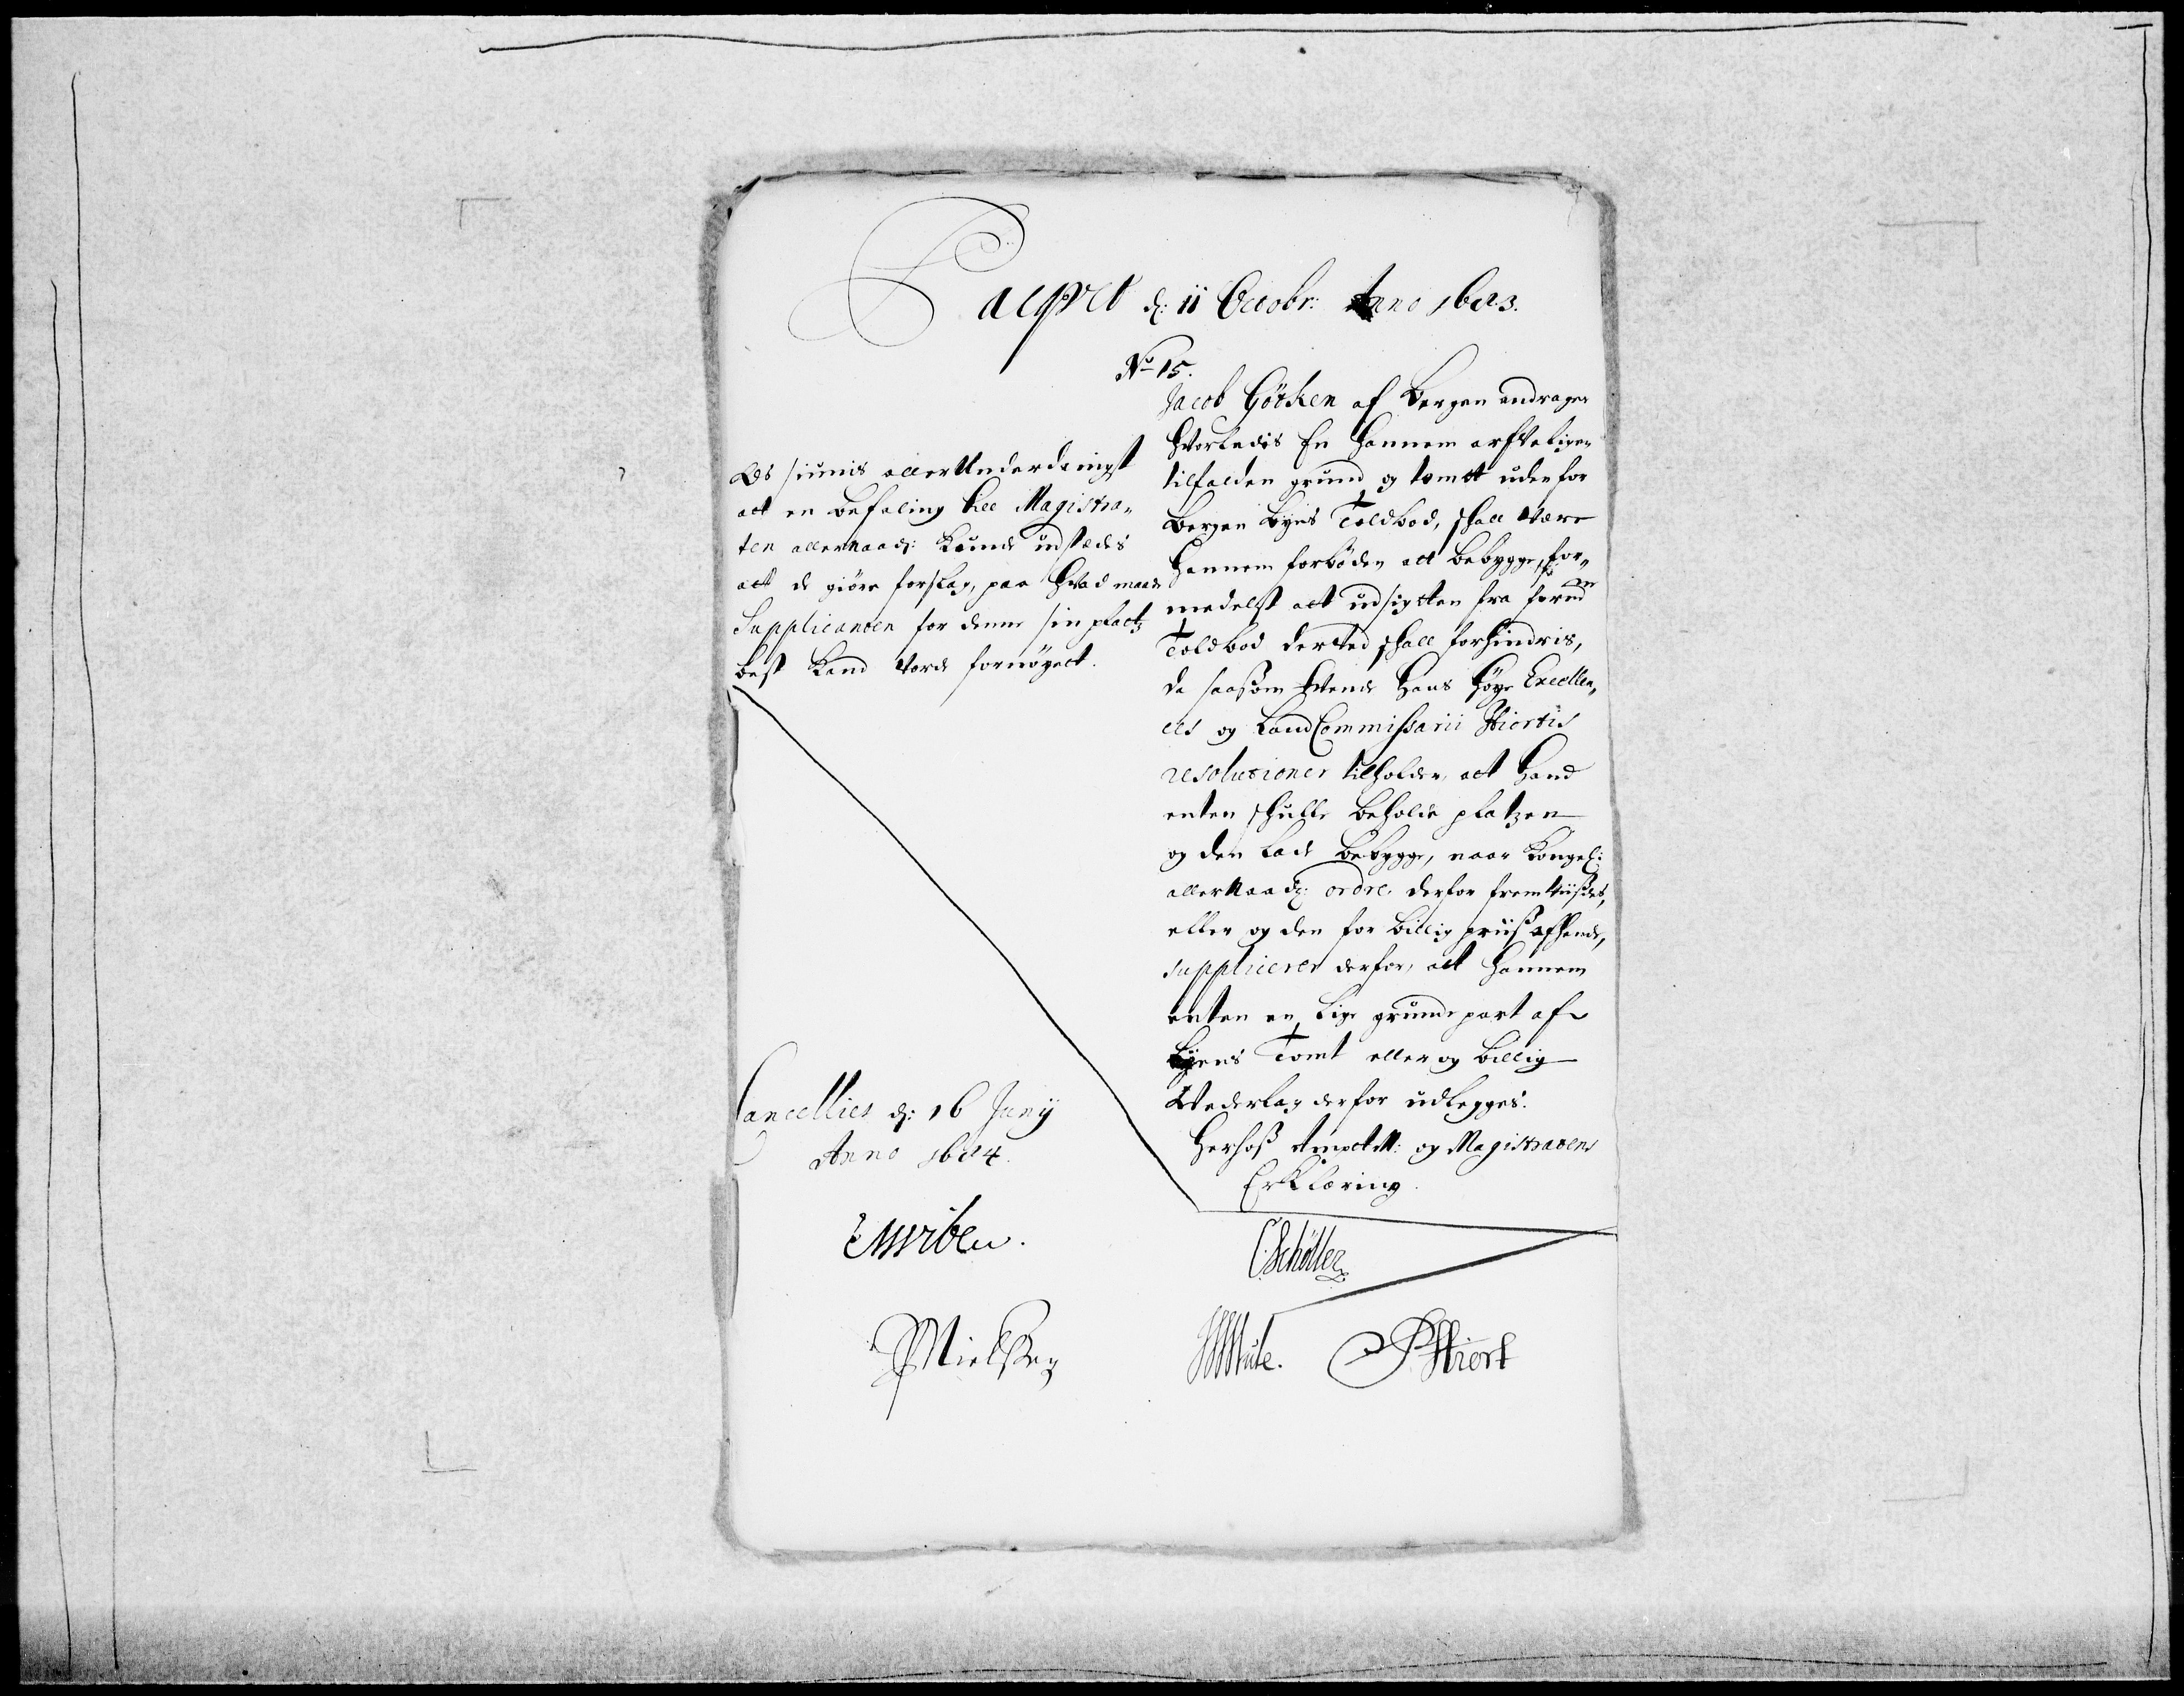 d: 11 Octobr: Anno 1683.
No 15.
Jacob Götken af Bergen andrager
hvorledis En hannem arfveligen
tilfalden grund og tomt uden for
Bergen Byes Toldbod, skall være
hannem forböden att bebygge, for„
medelst att udsigtten fra forne
Toldbod derved skall forhindris,
da saasom hans höye Excellen„
ces og LandCommissarii Hiortis
resolutioner tilholder, att hand
enten skulle beholde platzen
og den lade bebygge, naar kongel:
allernaad: ordre derfor fremviisdes,
eller og den for billig priis afhende,
supplicerer derfor, att hannem
enten en lige grunde part af
byens Tomt eller og billig
Vederlag derfor udlegges.
Herhos AmptM: og Magistratens
Erklæring.
Os siunis allerUnderdanigst
att en befaling till Magistra„
ten allernaad: kunde udstædes
att de giöre forslag, paa hvad maade
Supplicanten for denne sin platz
best kand vorde fornöyett.
Cancelliet d: 16 Junij
Anno 1684.
CSchöller
PNielssen
PHiort